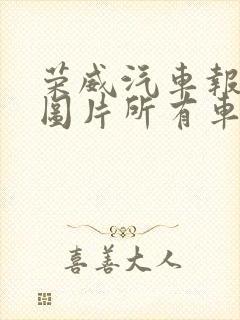 荣威汽車報
圖片所有車
喜善大人